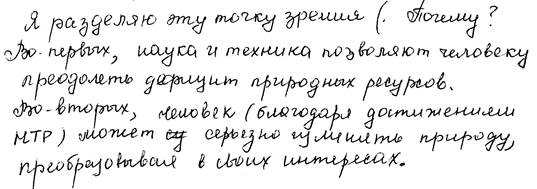 Я разделяю эту точку зрения (. Почему?
Во-первых, наука и техника позволяют человеку
преодолеть дефицит природных ресурсов.
Во-вторых, человек (благодаря достижениям
НТР) может серьезно изменять природу,
преобразовывая в своих интересах.